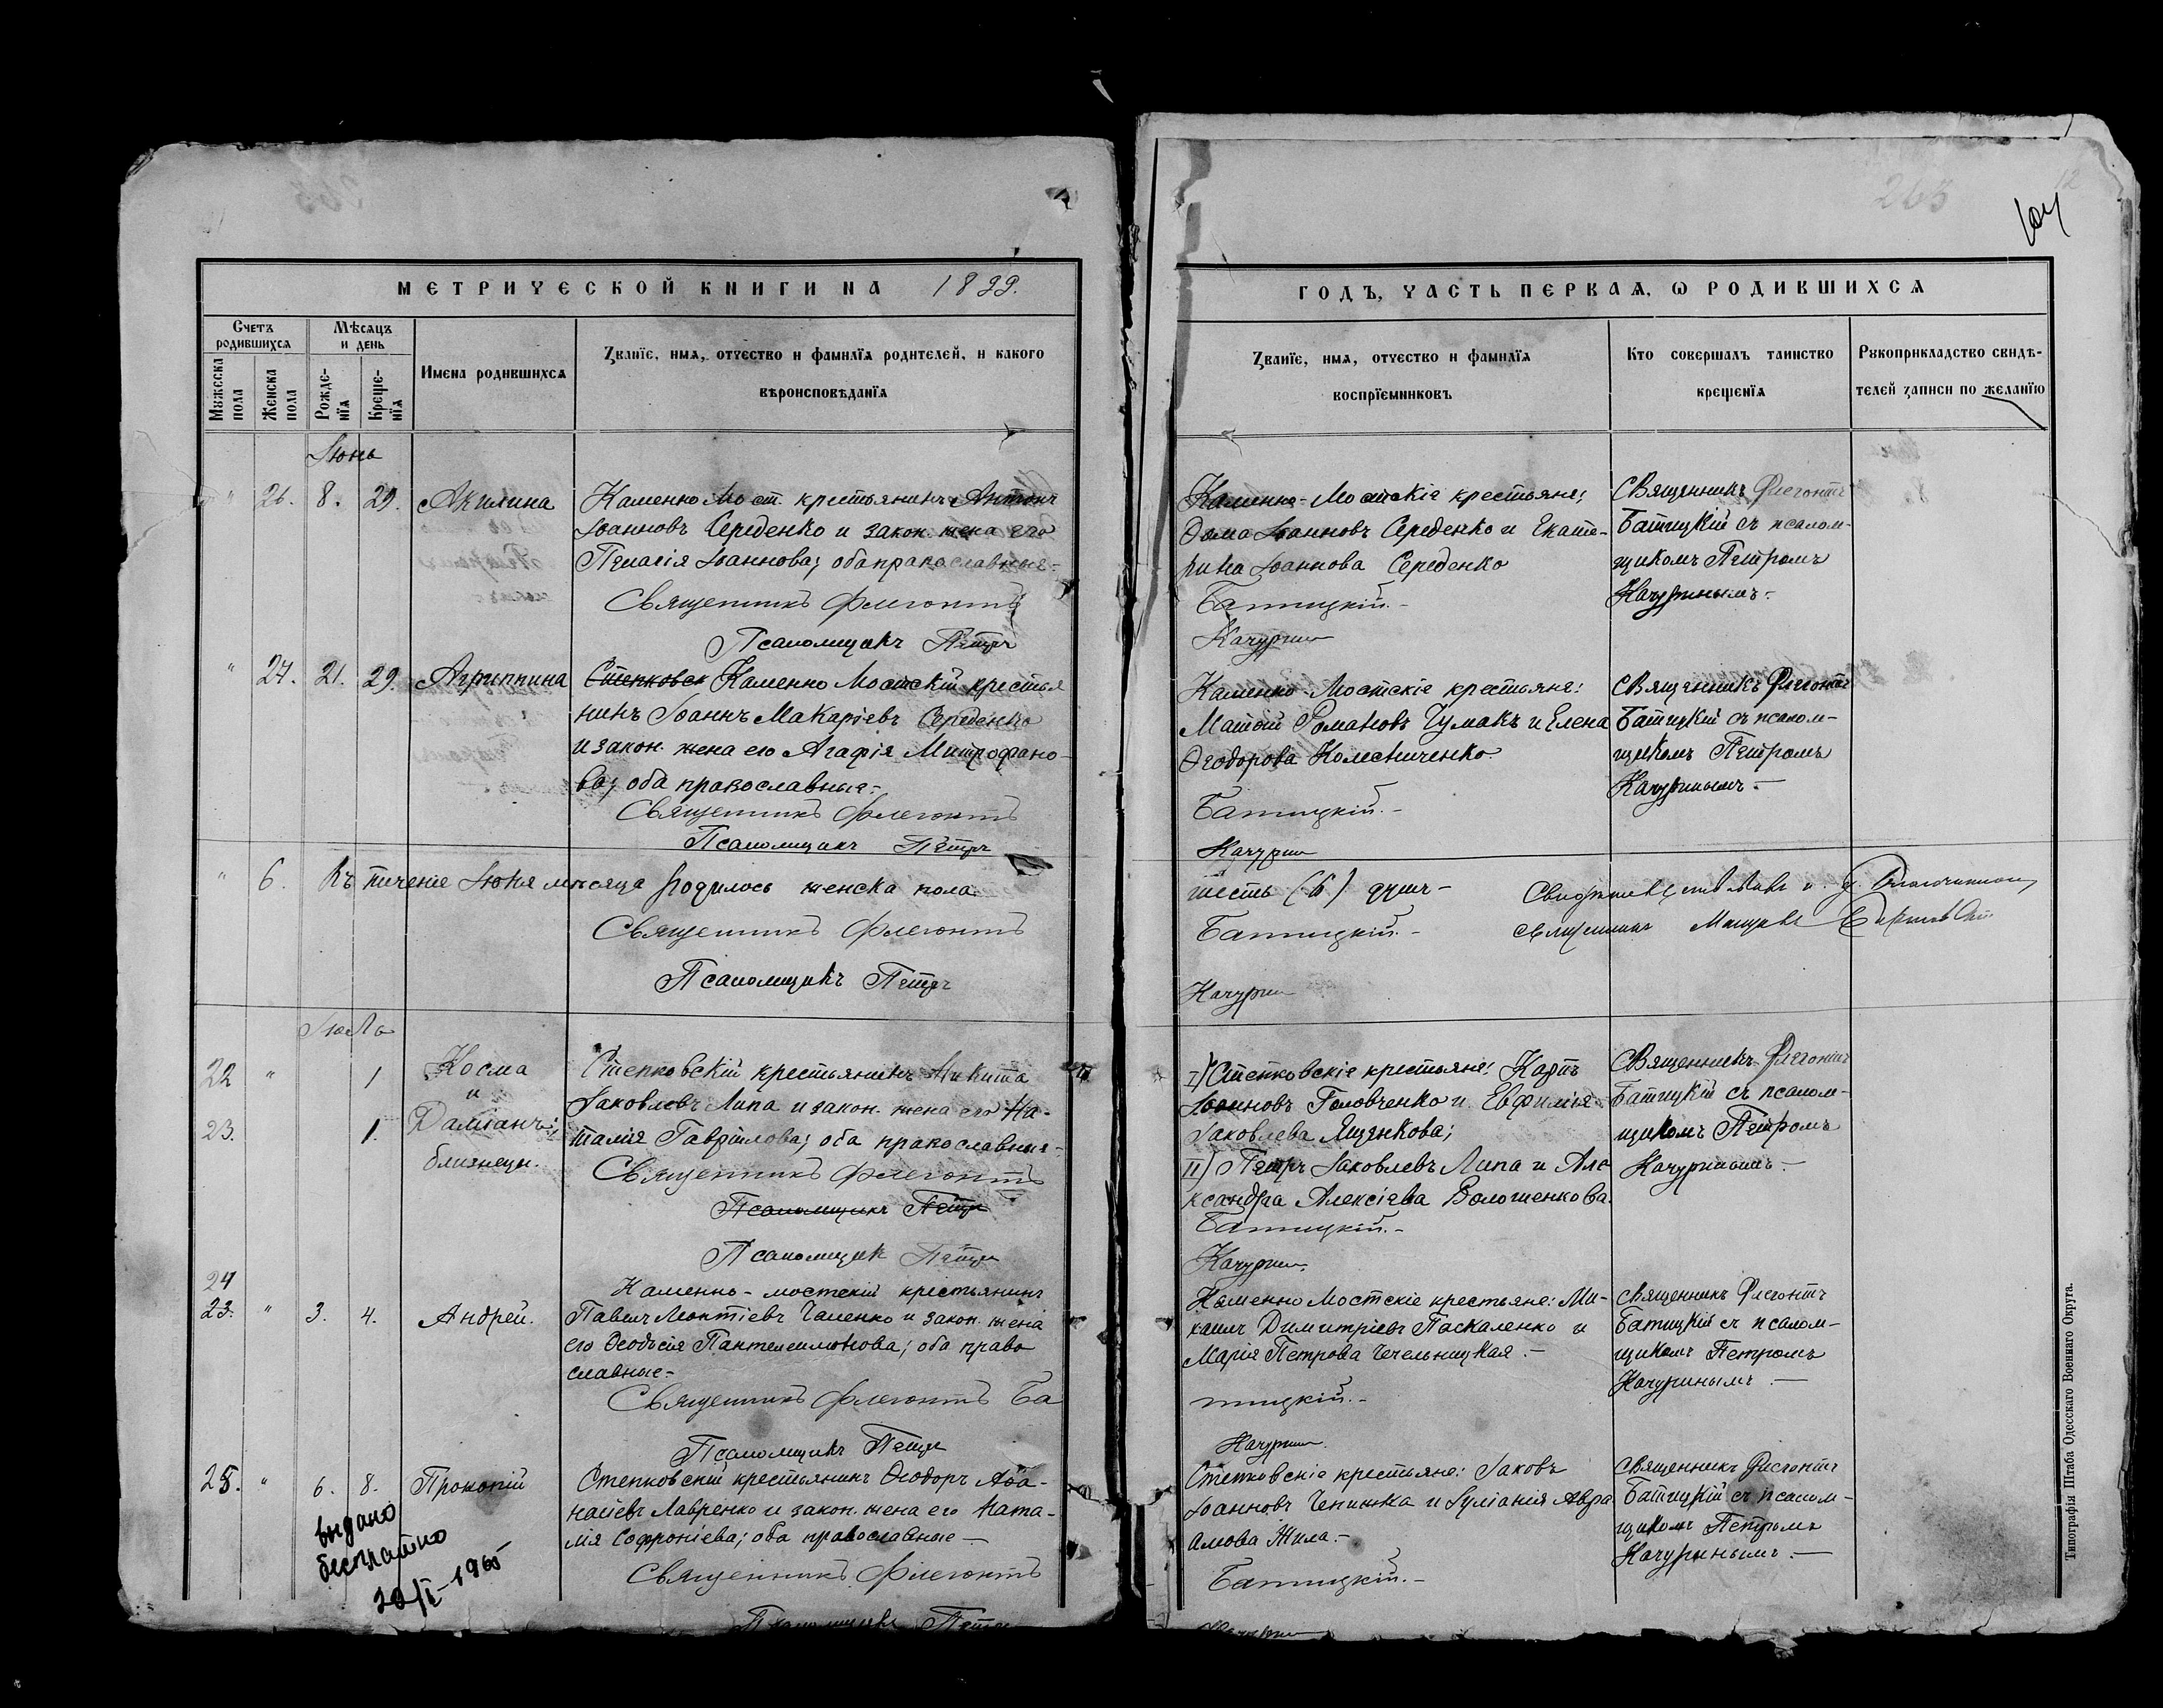 263
12
МЕТРИЧЕСКОЙ КНИГИ НА 1899.
ГОДЪ, ЧАСТЬ ПЕРВАЯ, Ѡ РОДИВШИХСЯ
Счетъ родившихся
Мужеска пола
Женска пола
Мѣсяцъ и день
Рожде-нія
Креще-нія
Имена родившихся
Званіе, имя, отчество и фамилія родителей, и какого
вѣроисповѣданія
Званіе, имя, отчество и фамилія
воспріемниковъ
Кто совершалъ таинство
крещенія
Рукоприкладство свидѣ-
телей записи по желанію
Іюнь
" 26. 8. 29. Акилина
Каменно Мост. крестьянинъ Антонъ
Іоанновъ Середенко и закон. жена его
Пелагія Іоаннова; оба православные.-
Священникъ Флегонтъ
Псаломщикъ Петръ
Каменно-Мостскіе крестьяне:
Ѳома Іоанновъ Середенко и Екате-
рина Іоаннова Середенко
Батицкій.-
Качурин
Священникъ Флегонтъ
Батицкій съ псалом-
щикомъ Петромъ
Качуринымъ.-
" 27. 21. 29. Агриппина
Степковск Каменно Мостскій крестья
нинъ Іоаннъ Макаріевъ Середенко
и закон. жена его Агафія Митрофано-
ва; оба православные.-
Священникъ Флегонтъ
Псаломщикъ Петръ
Каменно-Мостскіе крестьяне:
Матѳій Романовъ Чумакъ и Елена
Ѳеодорова Колесниченко.
Батицкій.-
Качурин
Священникъ Флегонтъ
Батицкій съ псалом-
щикомъ Петромъ
Качуринымъ.-
" 6. Въ теченіе Іюня мѣсяца родилось женска пола
шесть (6) душъ-
Священникъ Флегонтъ
Батицкій.-
священникъ
Псаломщикъ Петръ
Качурин
Іюль
22 " 1
23. 1.
Косма
и
Даміанъ;
близнецы.
Степковскій крестьянинъ Никита
Іаковлевъ Липа и закон. жена его На-
талія Гавріилова; оба православные.-
Священникъ Флегонтъ
Псаломщикъ Петръ
Псаломщик Петръ
I) Степковскіе крестьяне: Карпъ
Іоанновъ Головченко и Евфимія
Іаковлева Ященкова;
II) Петръ Іаковлевъ Липа и Але
ксандра Алексіева Волошенкова.
Батицкій.-
Качурин.
Священникъ Флегонтъ
Батицкій съ псалом-
щикомъ Петромъ
Качуринымъ.-
24
23. " 3. 4. Андрей.
Каменно-мостскій крестьянинъ
Павелъ Леонтіевъ Чаленко и закон. жена
его Ѳеодосія Пантелеимонова; оба право
славные.-
Священникъ Флегонтъ Ба
Псаломщикъ Петръ
Каменно Мостскіе крестьяне: Ми-
хаилъ Димитріевъ Паскаленко и
Марія Петрова Чечельницкая.-
тицкій.-
Качурин.
священникъ Флегонтъ
Батицкій съ псалом-
щикомъ Петромъ
Качуринымъ.-
25. " 6. 8. Прокопій
Степковскій крестьянинъ Ѳеодоръ Аѳа-
насіевъ Лавренко и закон. жена его Ната-
лія Софроніева; оба православные.-
Священникъ Флегонтъ
Псаломщикъ Петръ
Степковскіе крестьяне: Іаковъ
Іоанновъ Чепижка и Іуліанія Авра
амова Жила.-
Батицкій.-
Качурин
священникъ Флегонтъ
Батицкій съ псалом-
щикомъ Петромъ
Качуринымъ.-
выдано
бесплатно
Типографія Штаба Одесскаго Военнаго Округа.